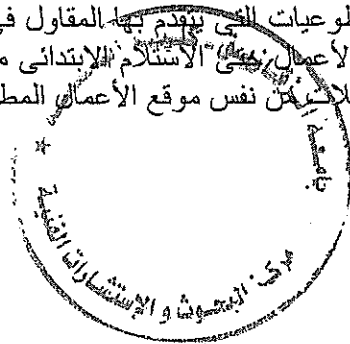 لوعيات التي يتقدم بها المقاول في
لأعمال حتى الاستلام الابتدائى م
لات من نفس موقع الأعمال المط
مركز البحوث و الإستشارات الفنية